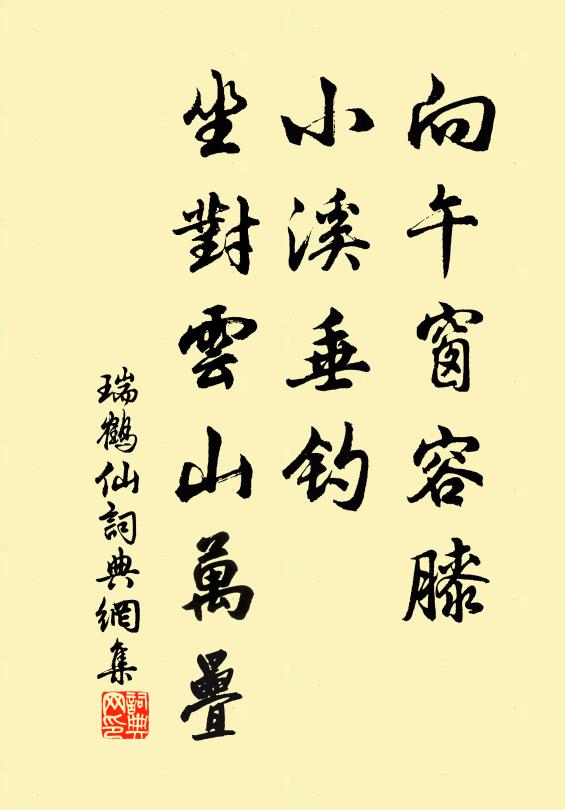 向午窗容膝
小溪垂钓
坐對雲山萬疊
瑞鶴仙詞典網集
詞典网印